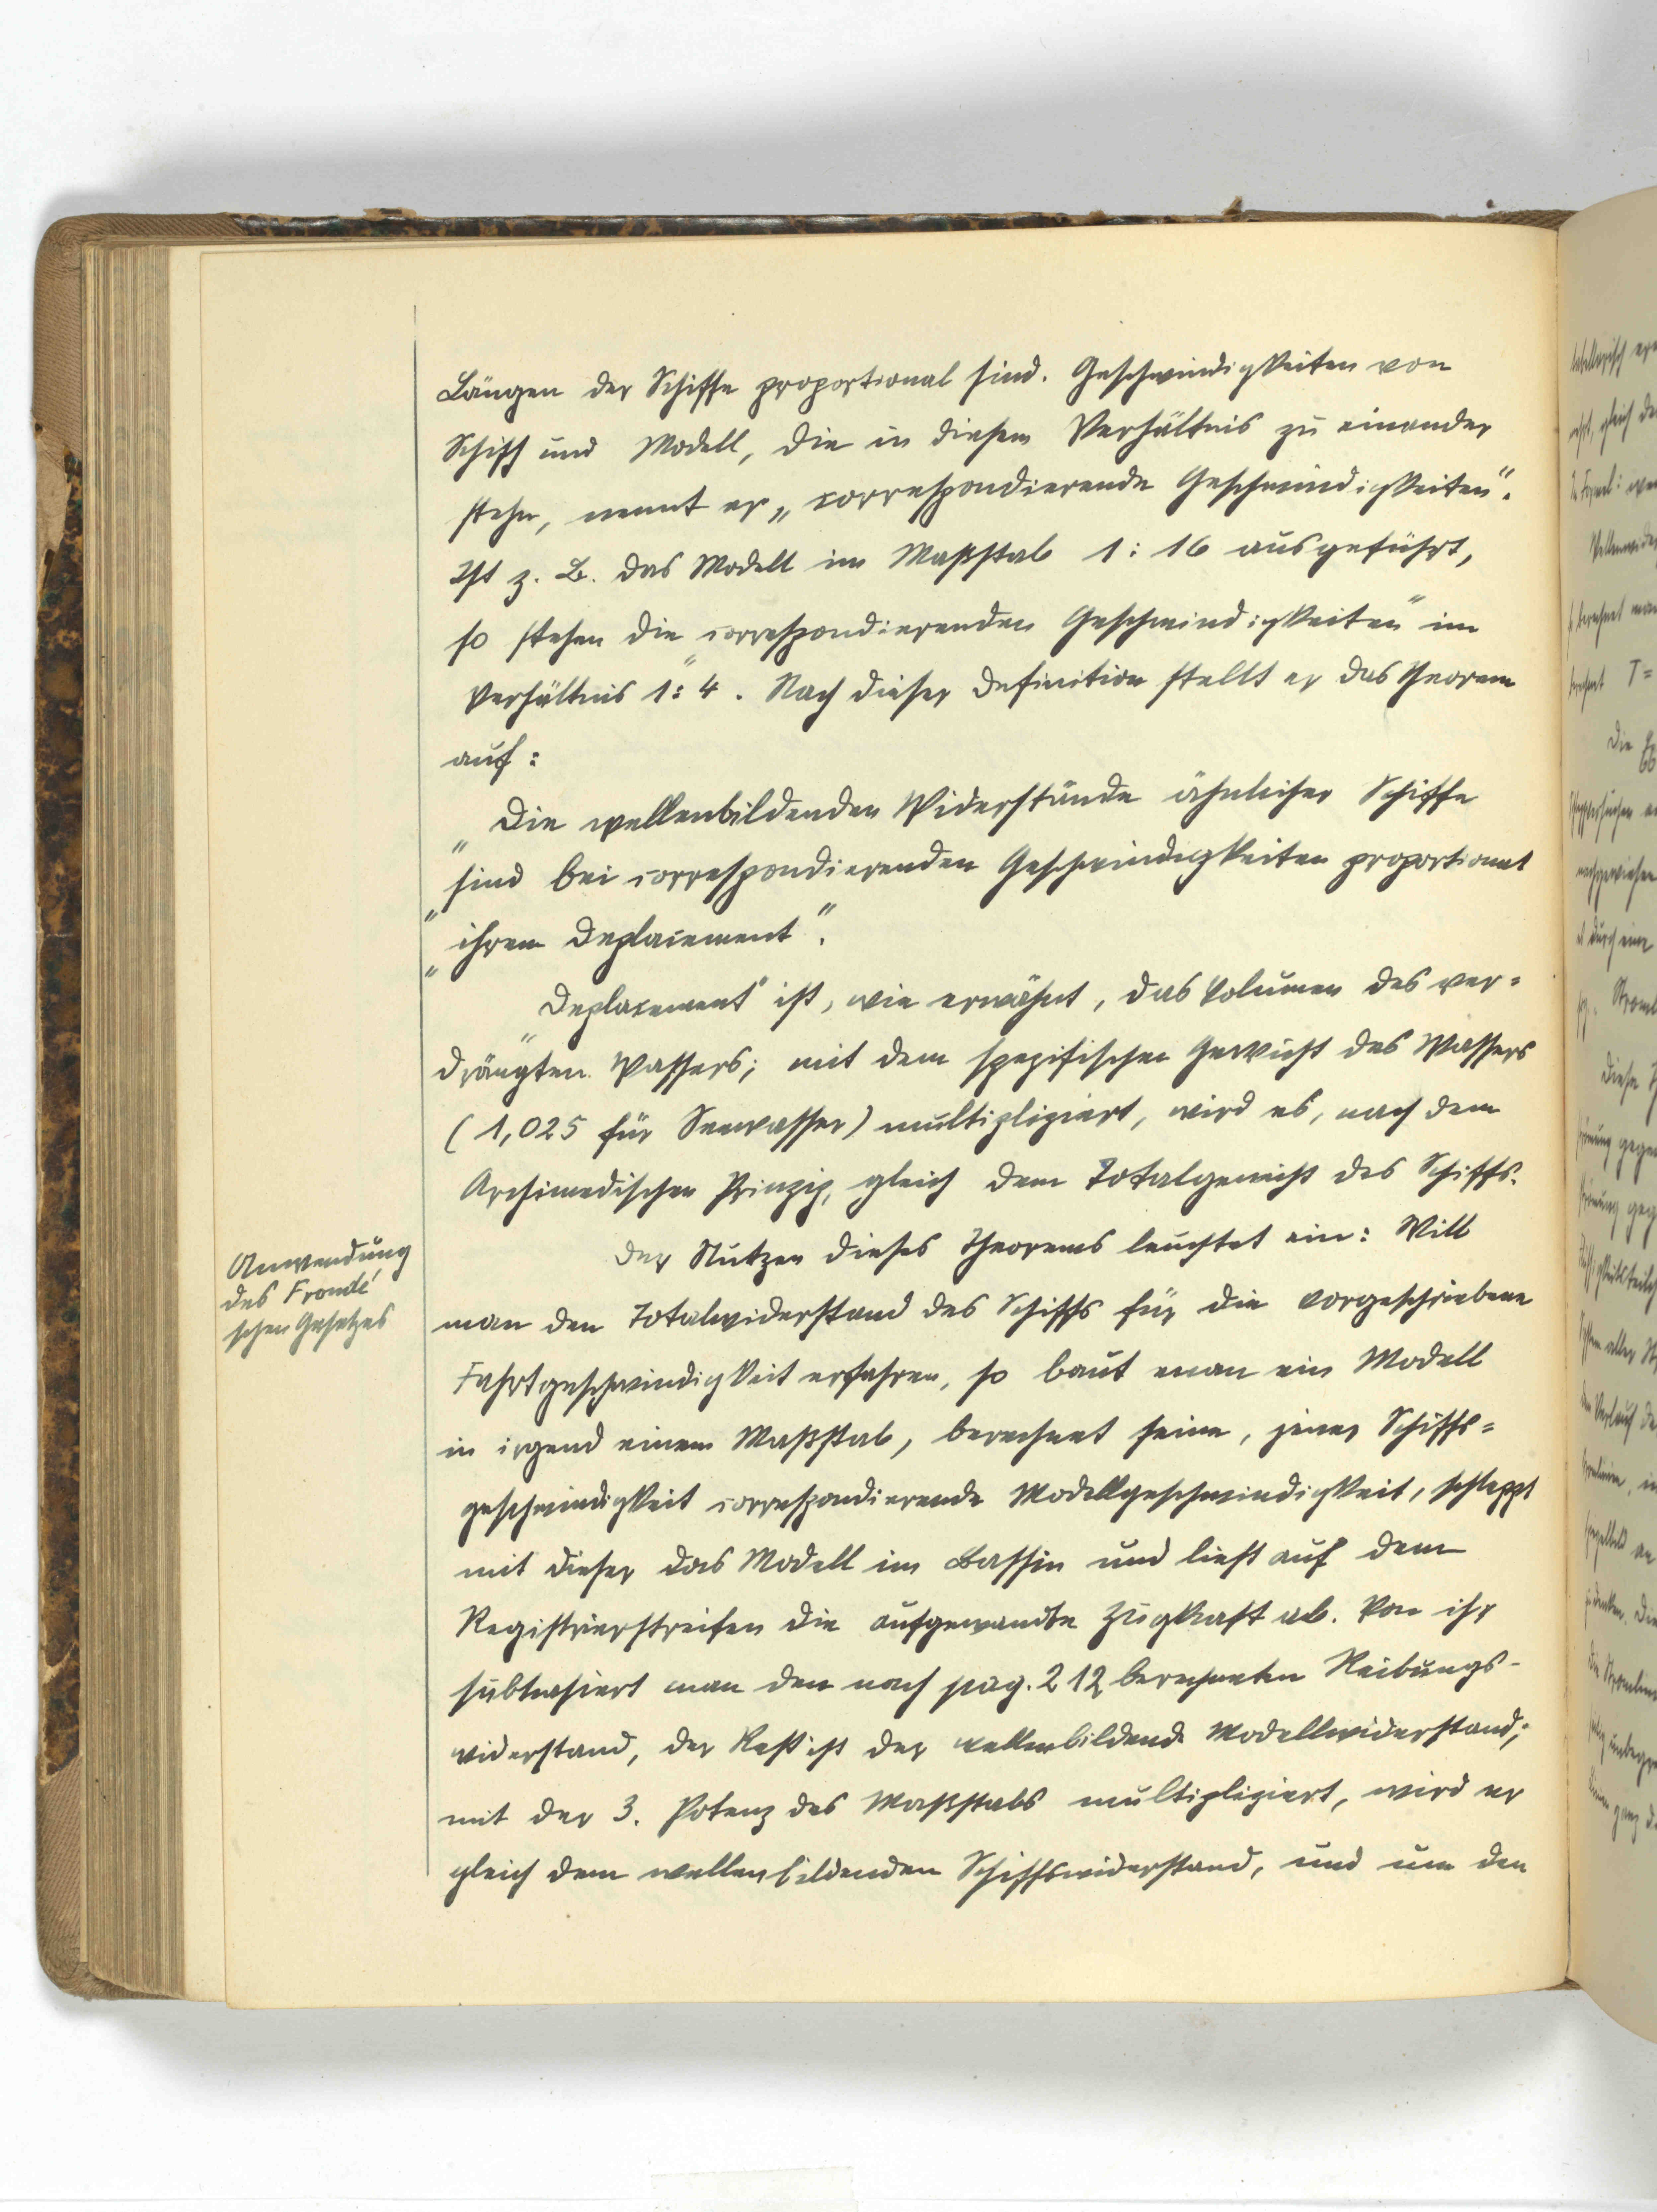 Längen der Schiffe proportional sind. Geschwindigkeiten von
Schiff und Modell, die in diesem Verhältnis zu einander
stehn, nennt er „correspondierende Geschwindigkeiten“.
Ist z. B. das Modell im Maßstab 1:16 ausgeführt,
so stehen die „correspondierenden Geschwindigkeiten“ im
Verhältnis 1:4. Nach dieser Definition stellt er das Theorem
auf:
„Die wellenbildenden Widerstände ähnlicher Schiffe
„sind bei correspondierenden Geschwindigkeiten proportional
„ihrem Deplacement“.
„Deplacement“ ist, wie erwähnt, das Volumen des ver=
drängten Wassers; mit dem spezifischen Gewicht des Wassers
(1,025 für Seewasser) multipliziert, wird es, nach dem
Archimedischen Prinzip, gleich dem Totalgewicht des Schiffs.
Anwendung
des Froudé'
schen Gesetzes
Der Nutzen dieses Theorems leuchtet ein: Will
man den Totalwiderstand des Schiffs für die vorgeschriebene
Fahrtgeschwindigkeit erfahren, so baut man ein Modell
in irgend einem Maßstab, berechnet seine, jener Schiffs=
geschwindigkeit correspondierende Modellgeschwindigkeit, schleppt
mit dieser das Modell im Bassin und liest auf dem
Registrierstreifen die aufgewandte Zugkraft ab. Von ihr
subtrahiert man den nach pag. 212 berechneten Reibungs-
widerstand, der Rest ist der wellenbildende Modellwiderstand;
mit der 3. Potenz des Maßstabs multipliziert, wird er
gleich dem wellenbildenden Schiffswiderstand, und um den